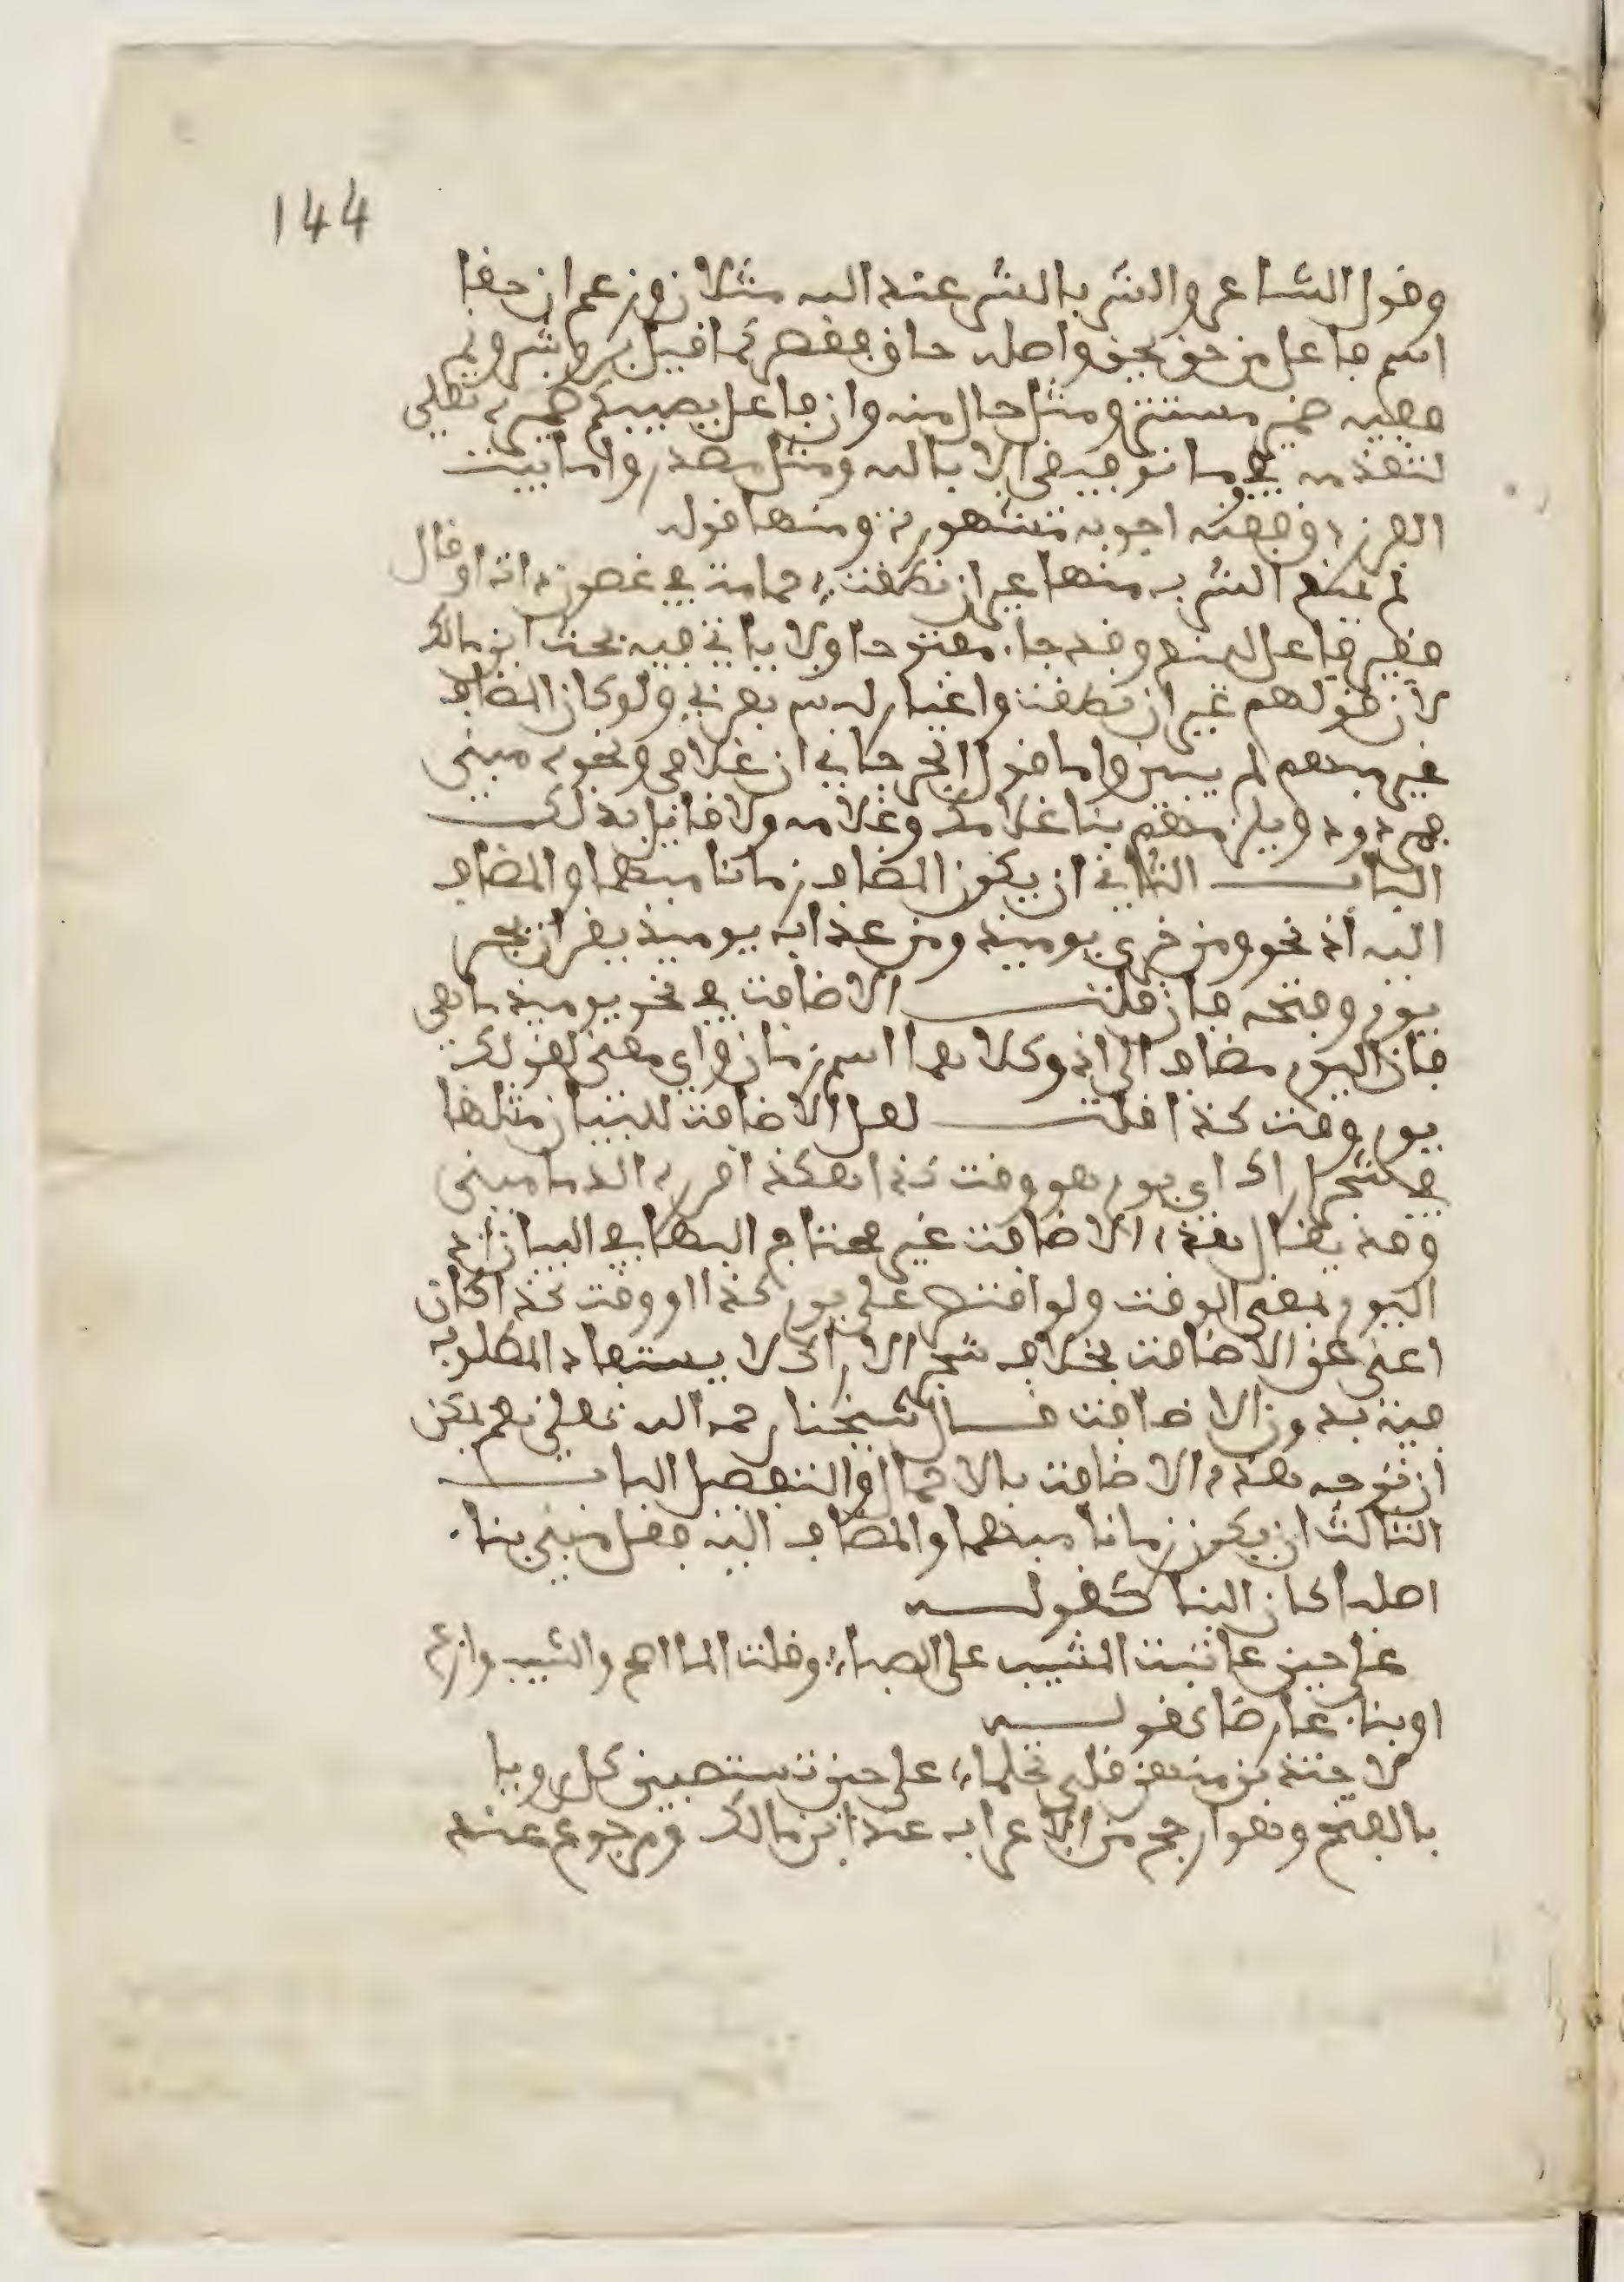 144
وقول الشاعر والشر بالشر عند الله مثلان وزعم ان حقا
اسم فاعل من حق يحق واصله حاق فقصر كما قيل بر وسر ونم
ففيه ضمير مستتر ومثل حال منه وان فاعل يصيبكم ضميره تعلى
لتقدمه في وما توفيقي الا بالله ومثل مصدر واما بيت
الفرزدق ففيه اجوبة مشهورة ومنها قوله
لم يمنع الشرب منها غير ان نطقت حمامة في غصون ذات اوقال
فغير فاعل ليمنع وقد جاء مفتوحا ولا ياتي فيه بحث ابن مالك
لان قولهم غير ان نطقت واغيار ليس بعربي ولو كان المضاف
غير مبهم لم يبن واما قول الجرجاني ان غلامي ونحوه مبني
فمردود ويلزمهم بناء غلامك وغلامه ولا قائل بذلك
الباب الثاني ان يكون المضاف زمانا مبهما والمضاف
اليه اذ نحو ومن خزي يومئذ ومن عذاب يومئذ يقران بجر
يوم وفتحه فان قلت الاضافة في نحو يومئذ ما هي
فان اليوم مضاف الى اذ وكلاهما اسم زمان واي معنى لقولك
يوم وقت كذا قلت لعل الاضافة للبيان مثلها
في شجر اراك اي يوم هو وقت كذا هكذا قرره الدماميني
وقد يقال هذه الاضافة غير محتاج اليها في البيان اذ
اليوم بمعنى الوقت ولو اقتصر على يوم كذا او وقت كذا كان
اغنى عن الاضافة بخلاف شجر الاراك لا يستفاد المطلوب
فيه بدون الاضافة قال شيخنا رحمه الله تعلى نعم يمكن
ان توجه هذه الاضافة بالاجمال والتفصيل الباب
الثالث ان يكون زمانا مبهما والمضاف اليه فعل مبني بناء
اصليا كان البنا كقوله
على حين عاتبت المشيب على الصبا وقلت الما اصح والشيب وازع
او بناء عارضا كقوله
لاجتذبن منهن قلبي تحلما على حين تستصبين كل روبا
بالفتح وهو ارجح من الاعراب عند ابن مالك ومرجوع عند